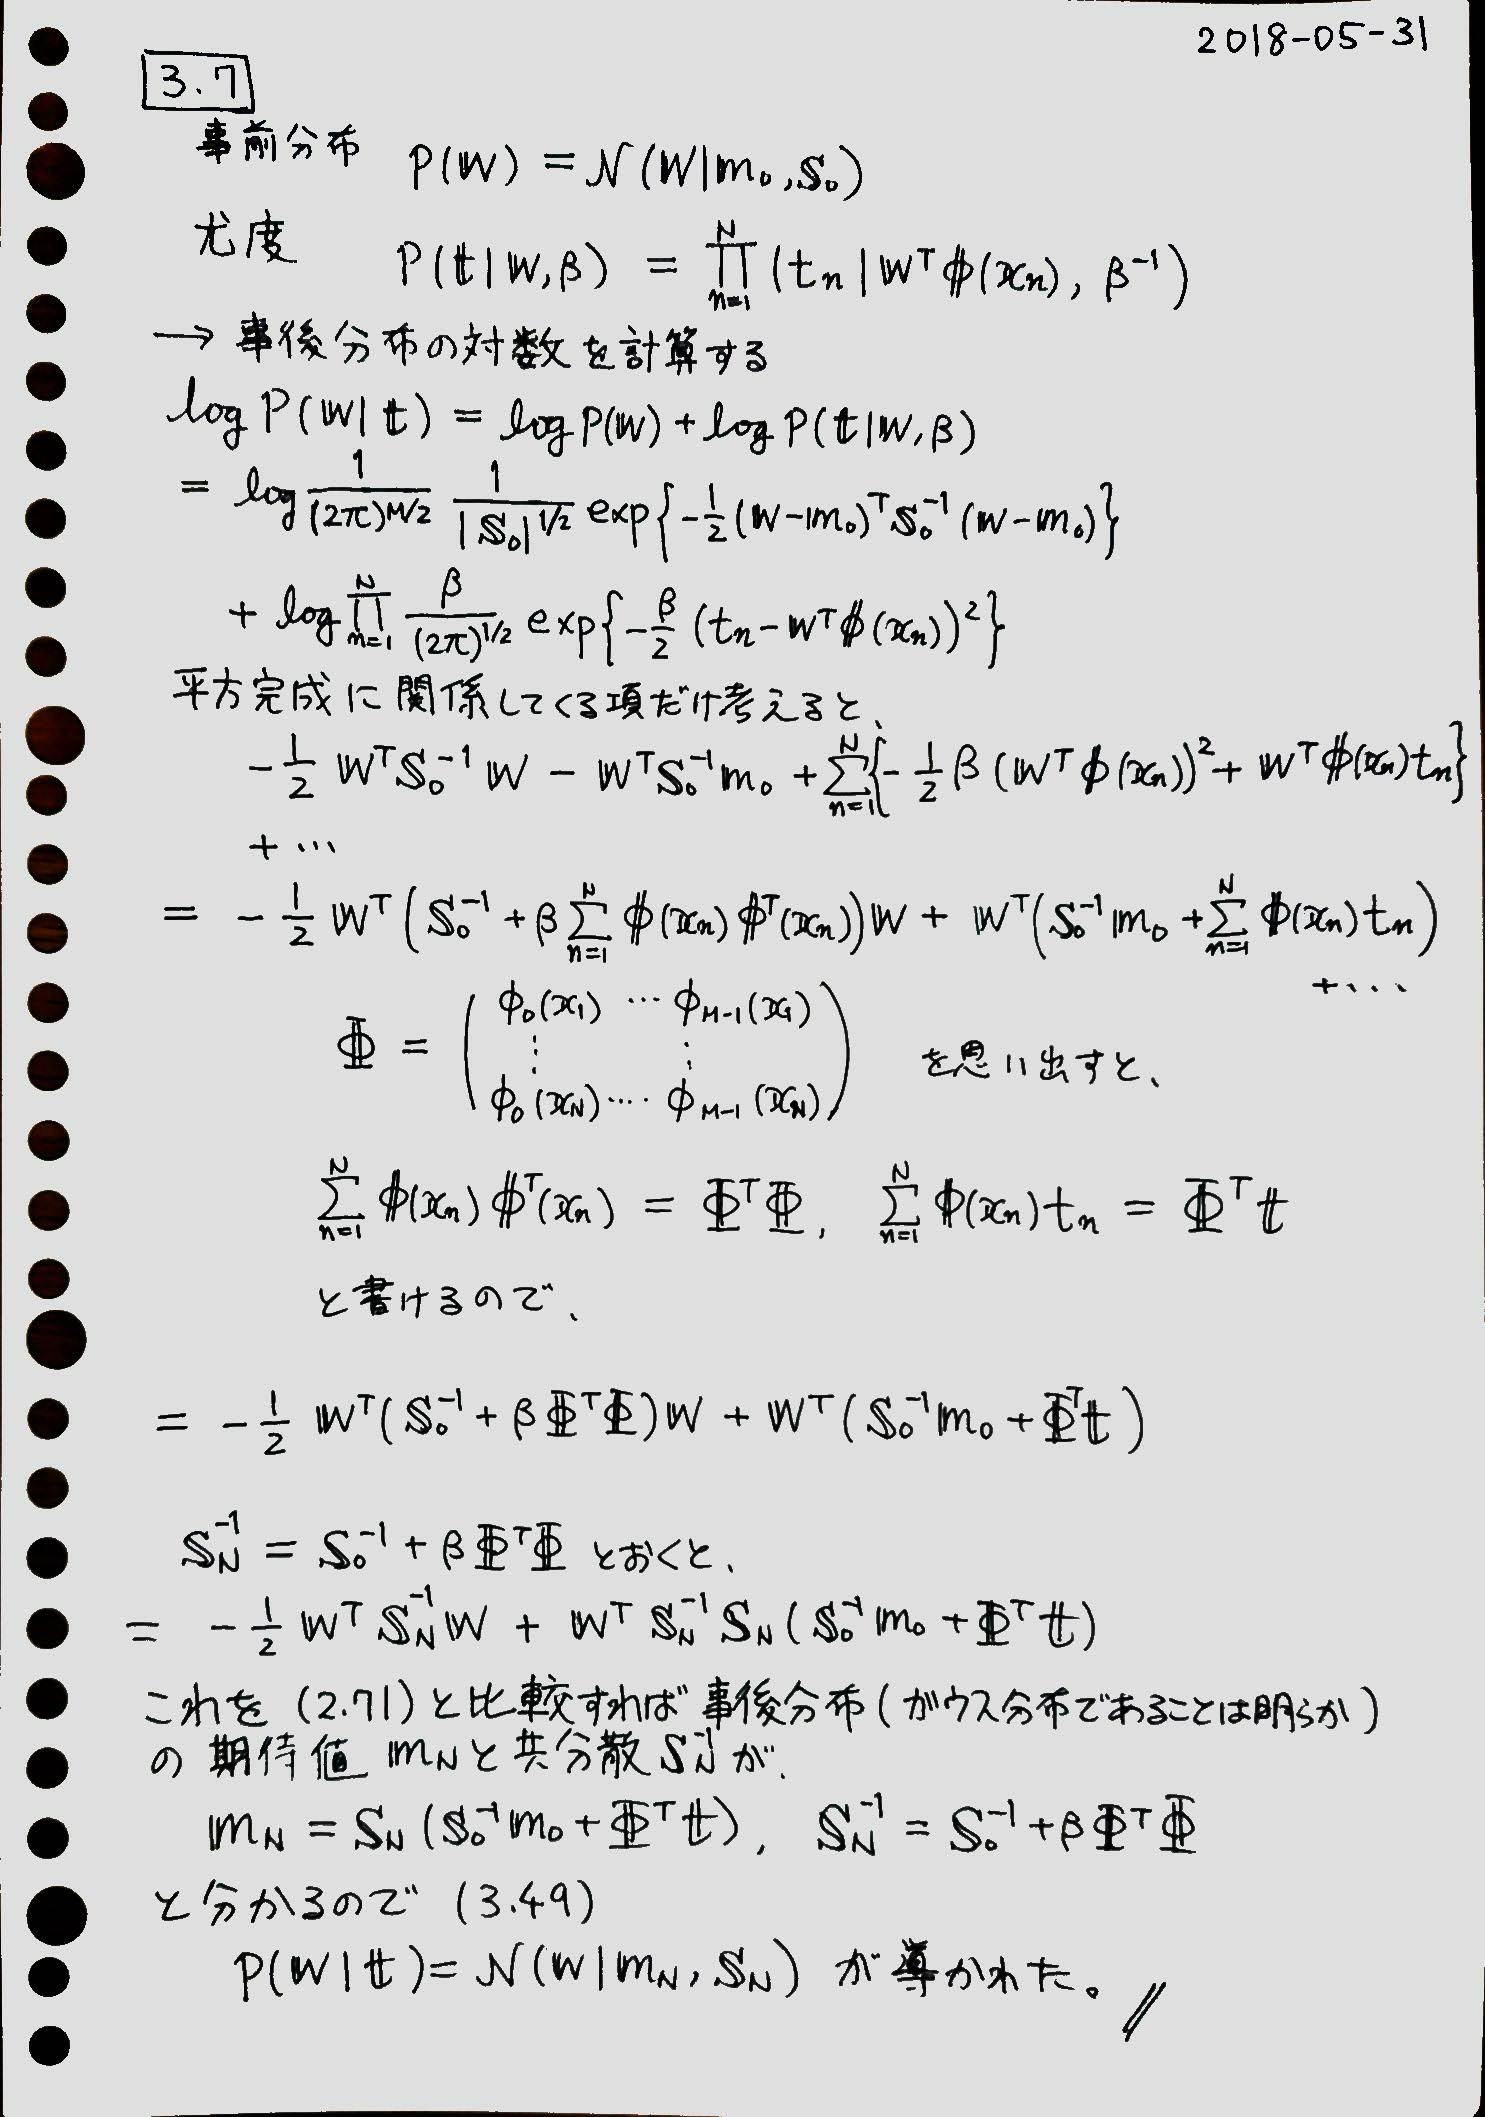 2018-05-31
3.7
事前分布 P(𝕎) = N(𝕎|𝕞₀, 𝕊₀)
尤度 P(𝕥|𝕎,β) = ∏_{n=1}^{N} (tₙ|𝕎ᵀφ(xₙ), β⁻¹)
→ 事後分布の対数を計算する
log P(𝕎|𝕥) = log P(𝕎) + log P(𝕥|𝕎,β)
= log 1/(2π)^{M/2} 1/|𝕊₀|^{1/2} exp{-1/2 (𝕎-𝕞₀)ᵀ𝕊₀⁻¹(𝕎-𝕞₀)}
+ log ∏_{n=1}^{N} β/(2π)^{1/2} exp{-β/2 (tₙ-𝕎ᵀφ(xₙ))²}
平方完成に関係してくる項だけ考えると、
-1/2 𝕎ᵀ𝕊₀⁻¹𝕎 - 𝕎ᵀ𝕊₀⁻¹𝕞₀ + ∑_{n=1}^{N}{-1/2 β(𝕎ᵀφ(xₙ))² + 𝕎ᵀφ(xₙ)tₙ}
+ …
= -1/2 𝕎ᵀ(𝕊₀⁻¹ + β∑_{n=1}^{N} φ(xₙ)φᵀ(xₙ))𝕎 + 𝕎ᵀ(𝕊₀⁻¹𝕞₀ + ∑_{n=1}^{N} φ(xₙ)tₙ)
+ …
Φ = ( φ₀(x₁) … φ_{M-1}(x₁)
⋮ ⋮
φ₀(x_N) … φ_{M-1}(x_N) ) を思い出すと、
∑_{n=1}^{N} φ(xₙ)φᵀ(xₙ) = ΦᵀΦ, ∑_{n=1}^{N} φ(xₙ)tₙ = Φᵀ𝕥
と書けるので、
= -1/2 𝕎ᵀ(𝕊₀⁻¹ + βΦᵀΦ)𝕎 + 𝕎ᵀ(𝕊₀⁻¹𝕞₀ + Φᵀ𝕥)
𝕊_N⁻¹ = 𝕊₀⁻¹ + βΦᵀΦ とおくと、
= -1/2 𝕎ᵀ𝕊_N⁻¹𝕎 + 𝕎ᵀ𝕊_N⁻¹𝕊_N(𝕊₀⁻¹𝕞₀ + Φᵀ𝕥)
これを (2.71) と比較すれば事後分布(ガウス分布であることは明らか)
の期待値 𝕞_N と共分散 𝕊_N⁻¹ が、
𝕞_N = 𝕊_N(𝕊₀⁻¹𝕞₀ + Φᵀ𝕥), 𝕊_N⁻¹ = 𝕊₀⁻¹ + βΦᵀΦ
と分かるので (3.49)
P(𝕎|𝕥) = N(𝕎|𝕞_N, 𝕊_N) が導かれた。//